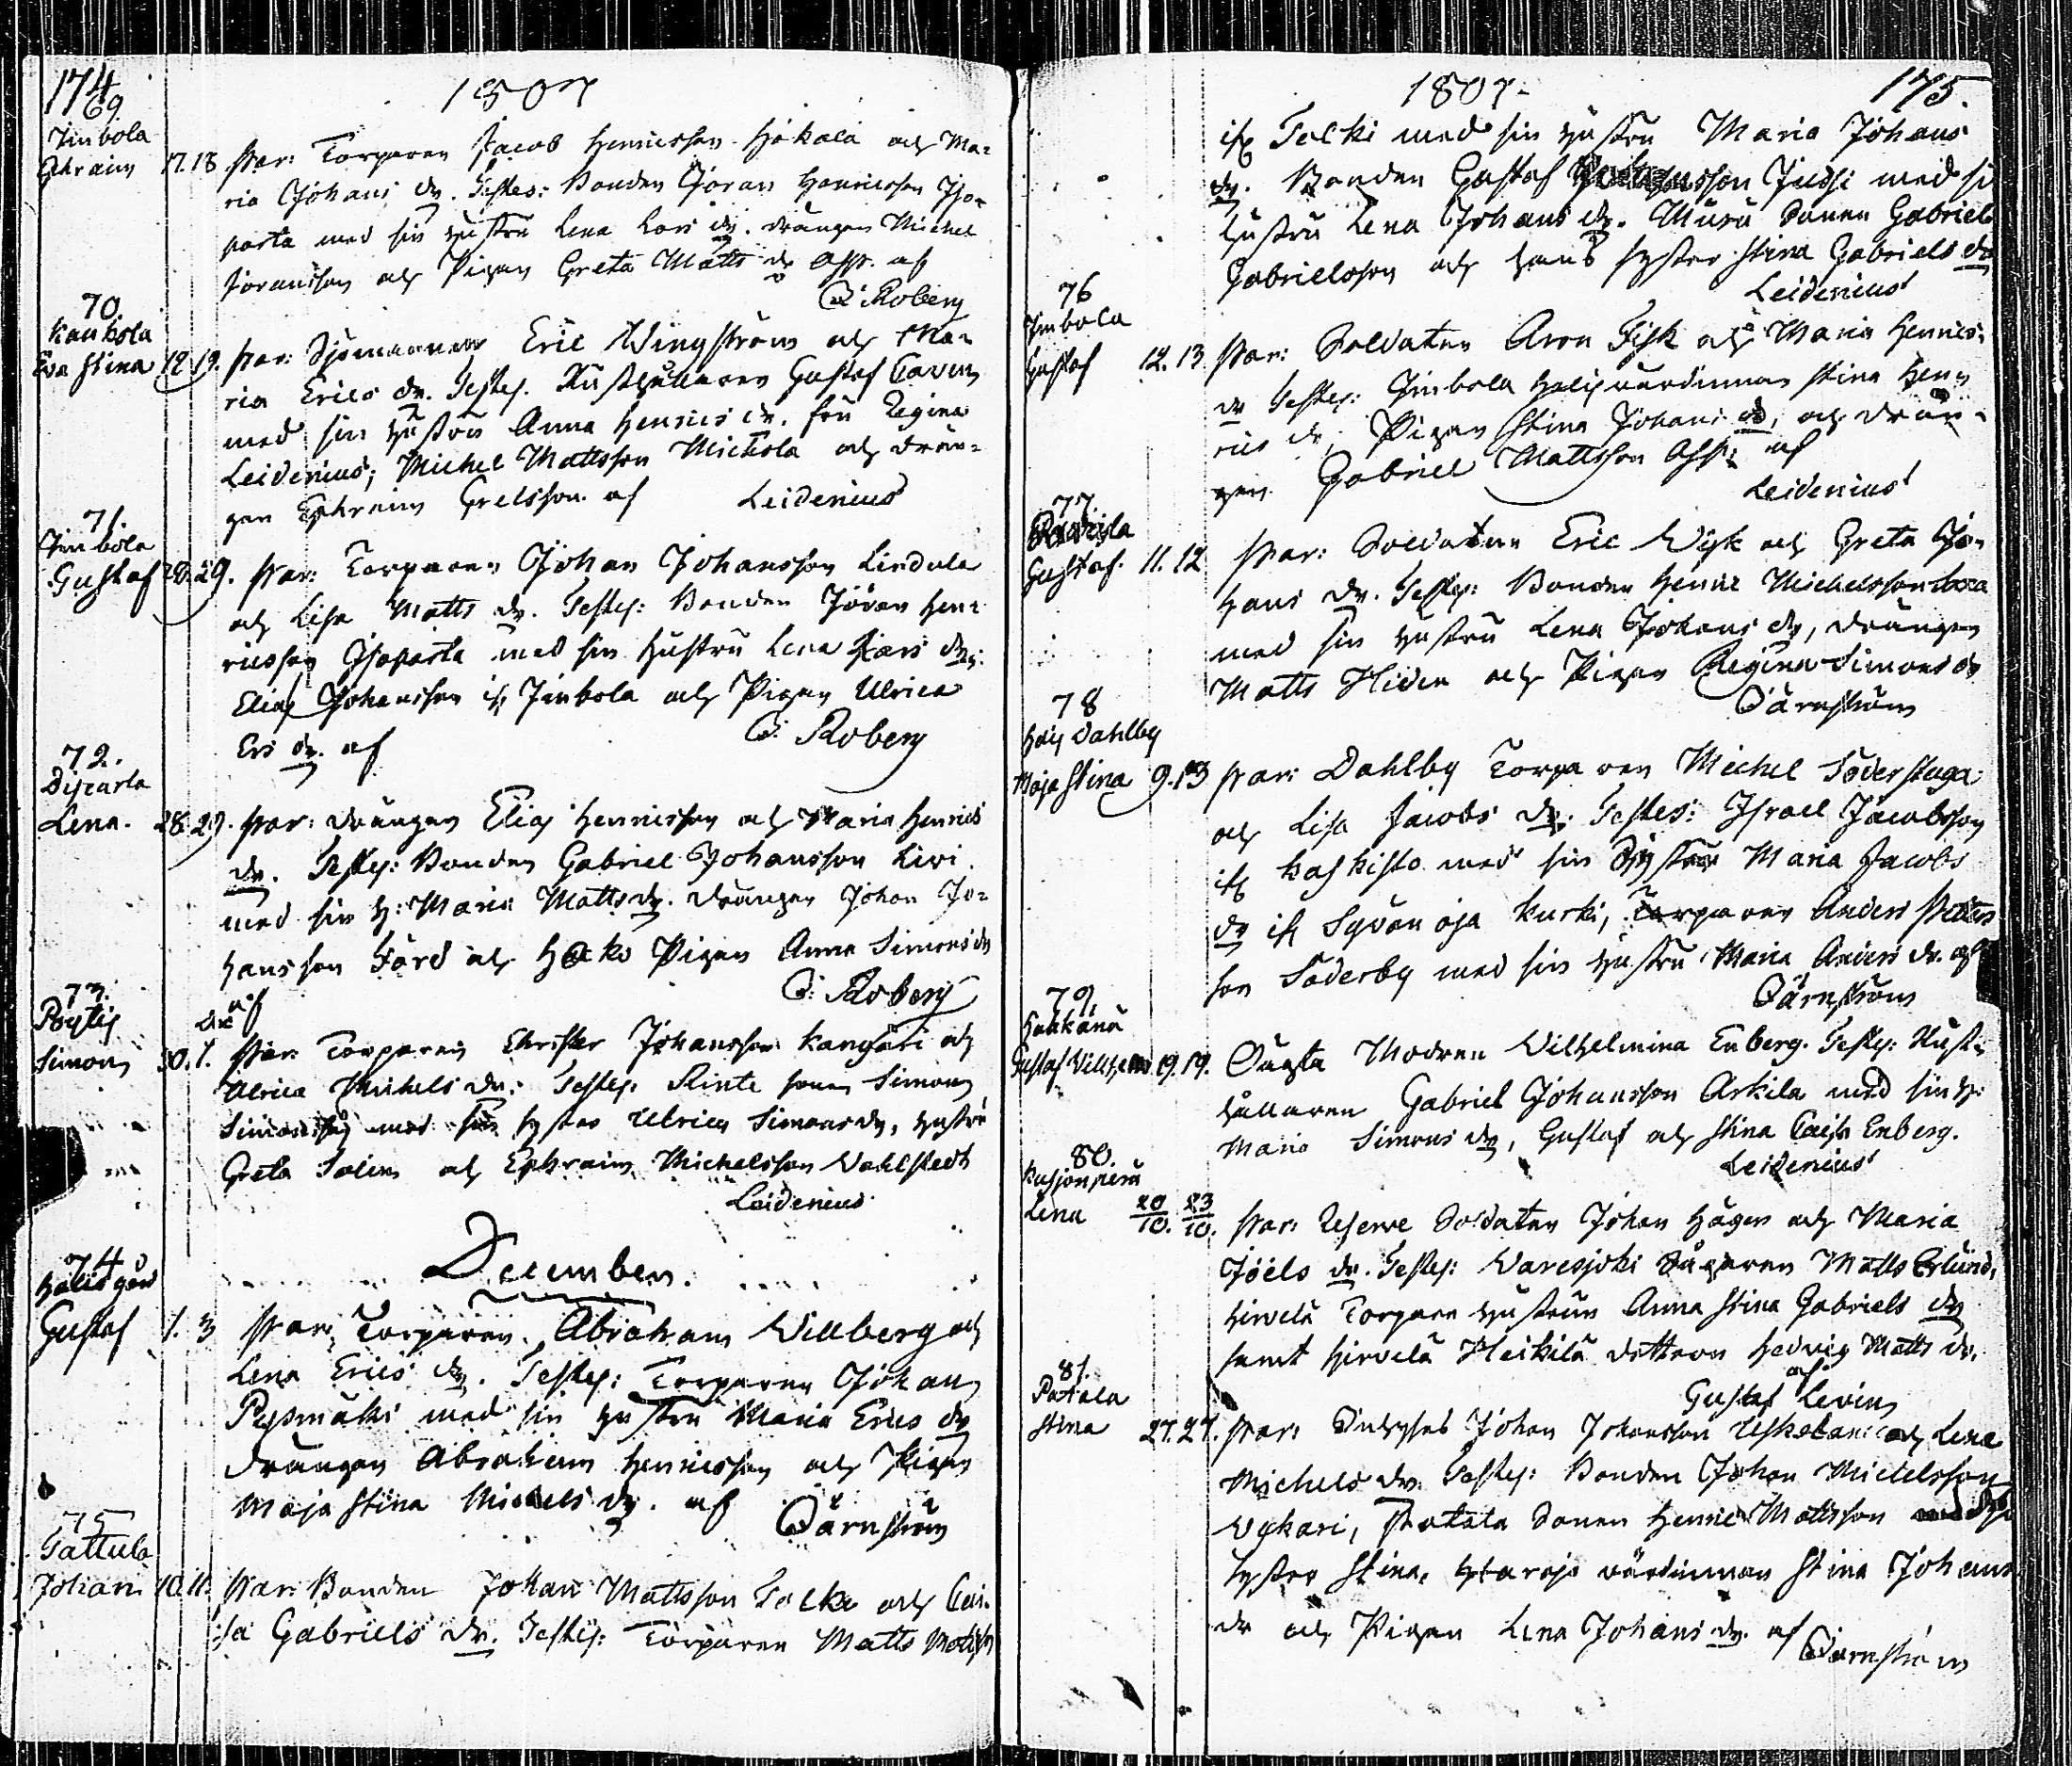 174
1807
69.
Jmbola
Ephraim 17. 18 Par: Torparen Jacob Henricsson Hiokala och Ma=
ria Johans dr. Testes: Bonden Göran Henricsson Iso=
parta med sin hustru Lena Lars dr. drängen Michel
Joransson och Pigan Greta Matts dr Ass. af
C: Roberg
70.
Kaukola
Eva Stina 12 19. Par: Sjömannen Eric Wingström och Ma=
ria Erics dr. Testes. Rusthållaren Gustaf Caven
med sin hustru Anna Henrics dr. fru Regina
Leidenius; Michel Mattsson Mickola och drän=
gen Ephraim Grelsson. af Leidenius
71.
Jmbola
Gustaf 28. 29. Par: Torparen Johan Johansson Lindula
och Lisa Matts dr. Testes: Bonden Jöran Hen=
ricsson Isoparta med sin hustru Lena Lars dr.
Elias Johansson ifr Jmbola och Pigan Ulrica
Ers dr. af C. Roberg
72.
Lena. 28. 29. Par: drängen Elias Henricsson och Maria Henrics
dr. Testes: Bonden Gabriel Johansson Kivi
med sin h: Maria Matts dr. drängen Johan Jo=
hansson Tård och Hoko Pigan Anna Simons dr
af C: Roberg
73.
Pöytis
Simon 30. 1. Par: Torparen Christer Johansson Kangari och
Ulrica Michels dr: Testes: Rinte sonen Simon
Simonsson med sin syster Ulrica Simons dr, hustru
Greta Salin och Ephraim Michelsson Wahlstedt
Leidenius
December.
74
Gustaf 1. 3 Par: Torparen Abraham Willberg och
Lena Erics dr. Testes: Torparen Johan
Pyssmäki med sin hustru Maria Erics dr
drängen Abraham Henricsson och Pigan
Maja Stina Michels dr. af Därnström
75
Tattula
Johan 10. 11. Par: Bonden Johan Mattsson Tolki och Cai=
sa Gabriels dr. Testes: Torparen Matts Matss
1807. 175.
ifr Tolki med sin hustru Maria Johans
dr. Bonden Gustaf Jussi med si
hustru Lena Johans dr. Musu Sonen Gabriel
Gabrielsson och hans syster Stina Gabriels dr
Leidenius
76
Jmbola
Gustaf 12. 13 Par: Soldaten Aron Fisk och Maria Henrics
dr Testes: Jmbola Holis värdinnan Stina Hen=
rics dr, Pigan Stina Johans dr, och drän=
gen Gabriel Mattsson Ass. af
Leidenius
77.
Gustaf. 11. 12 Par: Soldaten Eric Wijk och Greta Jo=
hans dr. Testes: Bonden Henric Michelsson
med sin hustru Lena Johans dr, drängen
Matts Hidén och Pigan Regina Simons dr
Därnström
78
Dahlby
Maja Stina 9. 13 Par: Dahlby Torparen Michel Söderstuga
och Lisa Jacobs dr. Testes: Israel Jacobsson
ifr Kaskisto med sin Syster Maria Jacobs
dr ifr Sydänoja Kurki, Torparen Anders Petters
son Söderby med sin hustru Maria Anders dr. af
Därnström
79.
Haukana
Gustaf Vilhelm 19. 19. Ougta Modren Vilhelmina Enberg. Testes: Rust=
hållaren Gabriel Johansson Arkila med sin h:
Maria Simons dr, Gustaf och Stina Caisa Enberg.
Leidenius
80.
Lena 20/10. 23/10. Par: Reserve Soldaten Johan Hägen och Maria
Joëls dr. Testes: Waresjoki Sågaren Matts Erlund,
Hirvelä Torpare hustrun Anna Stina Gabriels dr
samt Hirvelä Heikilä dottren Hedvig Matts dr.
af
Gustaf Levin
81.
Patala
Stina 27. 27. Par: Johan Johansson Uskolani och Lena
Michels dr. Testes: Bonden Johan Michelsson
Wykari, Potala Sonen Henric Mattsson med
syster Stina, värdinnan Stina Johans
dr och Pigan Lena Johans dr. af
Därnström